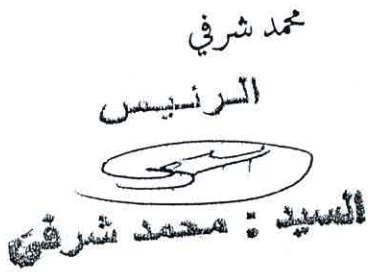 محمد شرفي
الرئيس
السيد : محمد شرفي